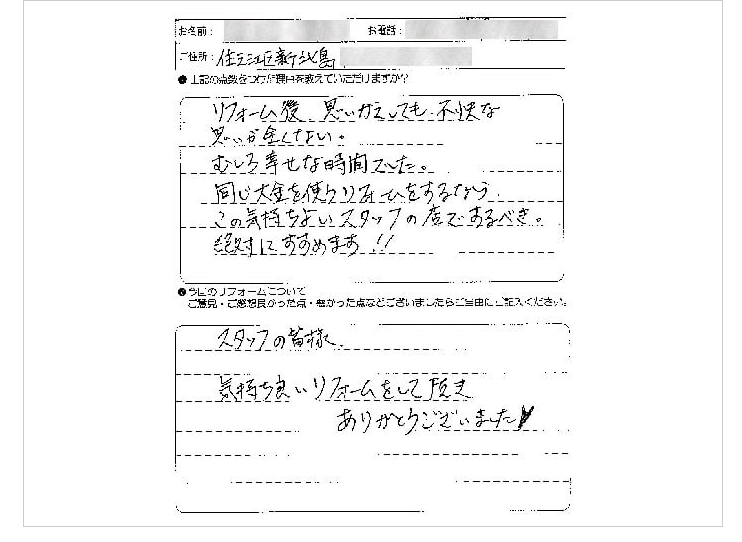 お名前： お電話：
ご住所： 住之江区新北島
● 上記の点数をつけた理由を教えていただけますか？
リフォーム後 思いかえしても、不快な
思いが全くない。
むしろ幸せな時間でした。
同じ大金を使うリフォームをするなら、
この気持ちよいスタッフの店でするべき。
絶対にすすめます!!
● 今回のリフォームについて
ご意見・ご感想良かった点・悪かった点などございましたらご自由にご記入ください。
スタッフの皆様、
気持ち良いリフォームをして頂き
ありがとうございました♥